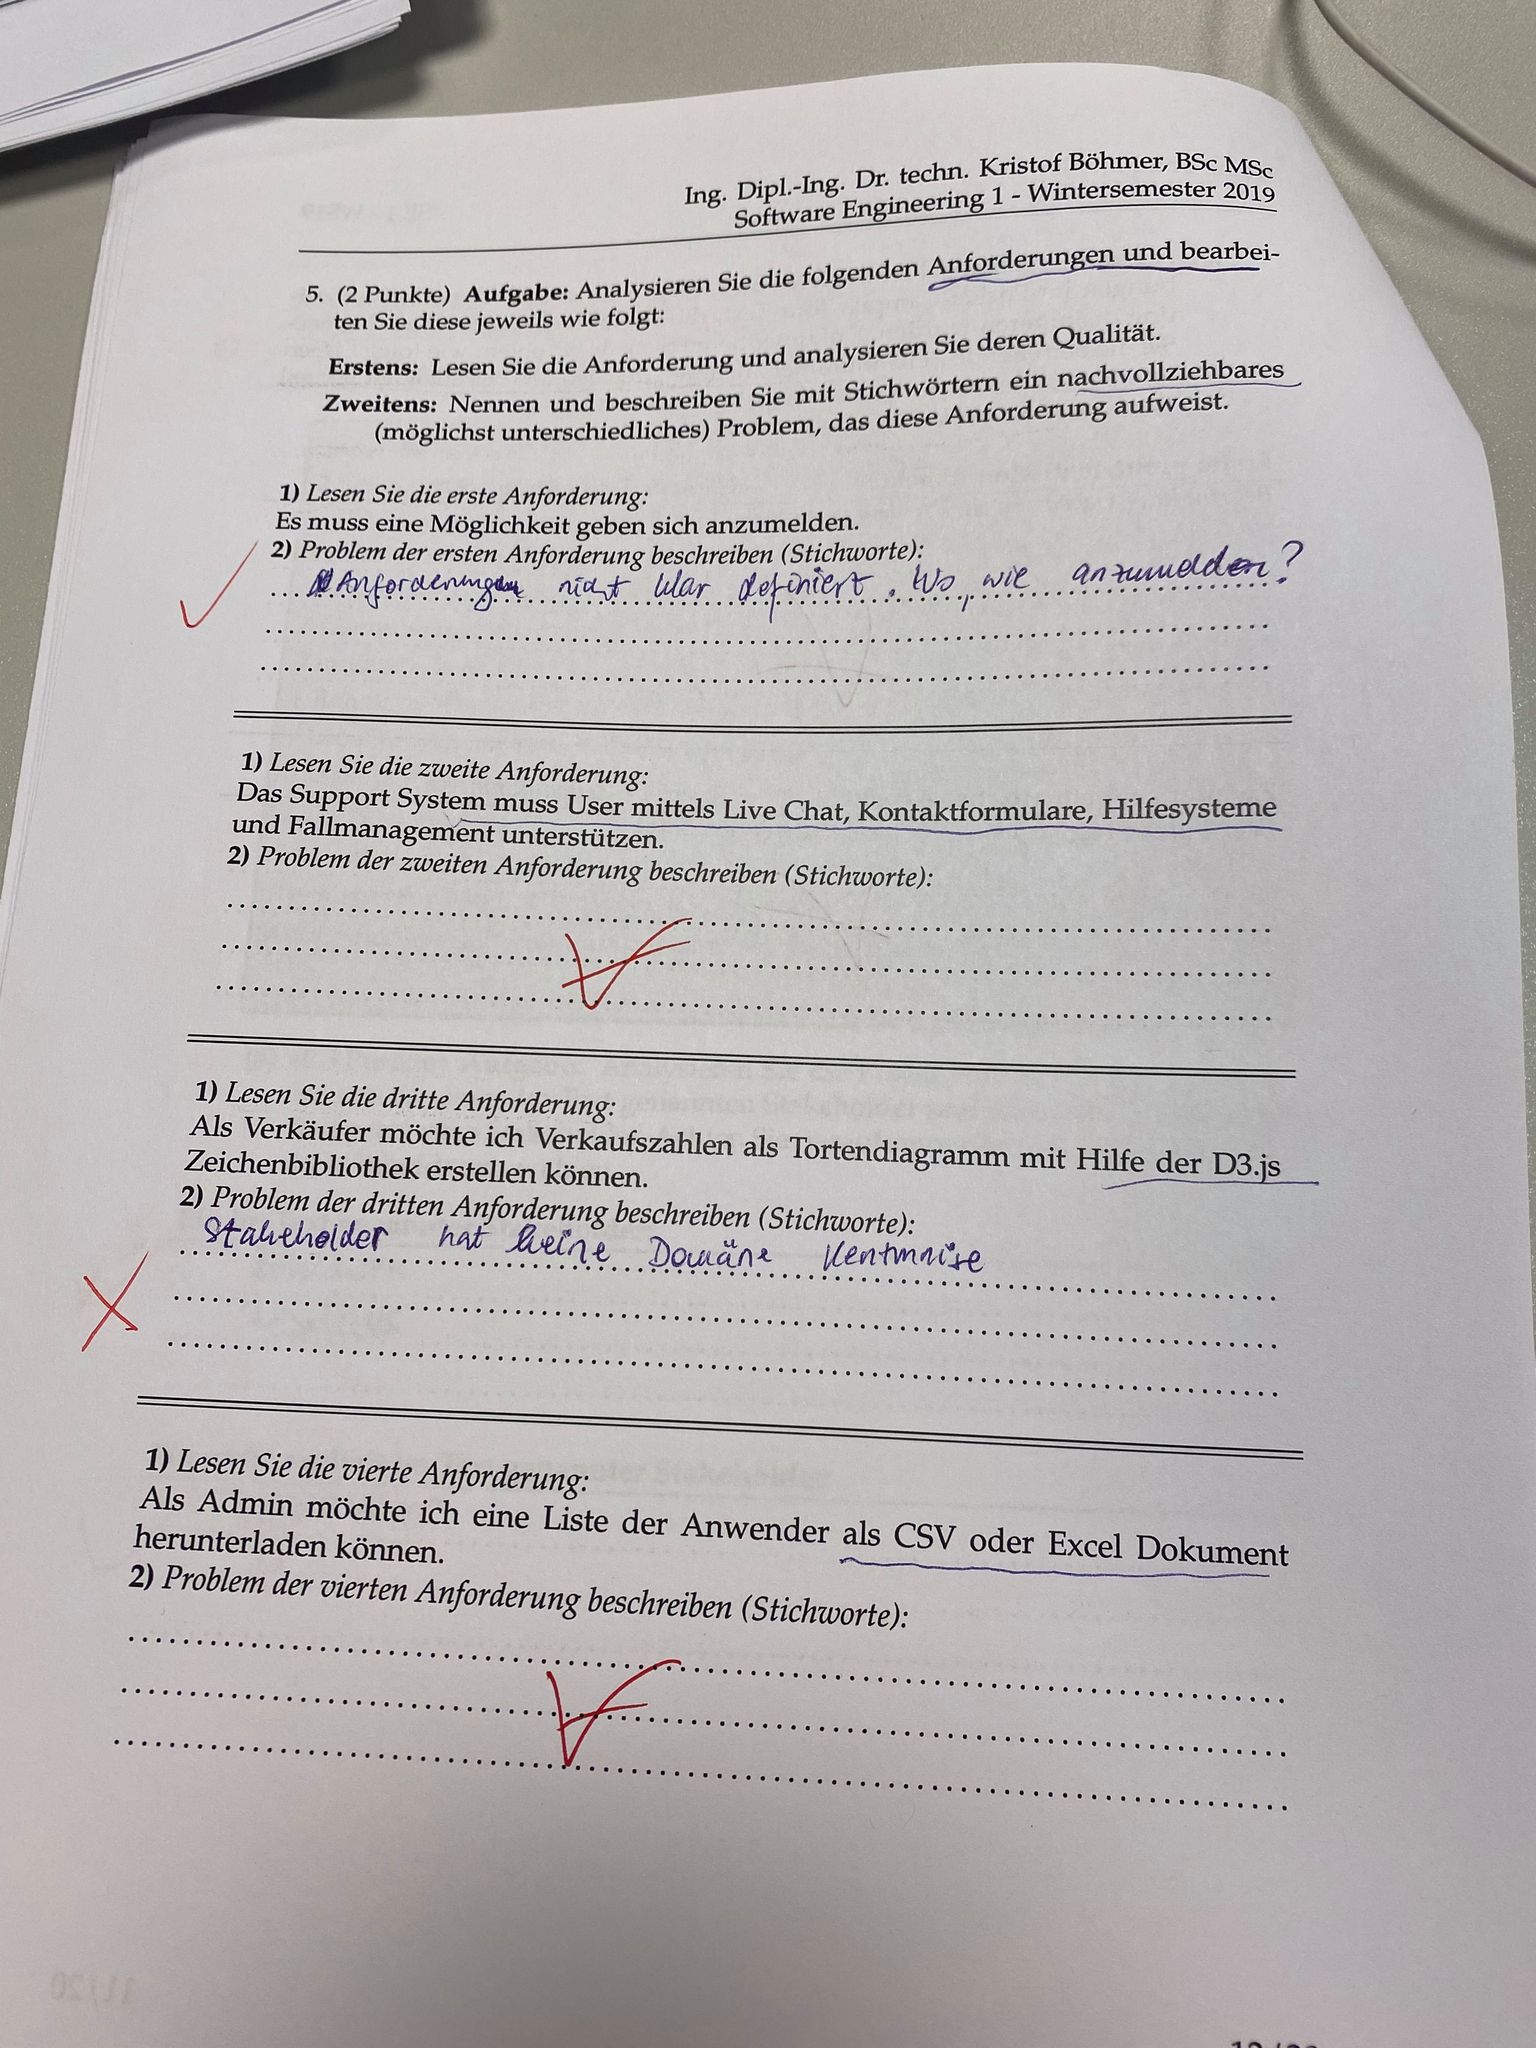 Ing. Dipl.-Ing. Dr. techn. Kristof Böhmer, BSc MSc
Software Engineering 1 - Wintersemester 2019
5. (2 Punkte) Aufgabe: Analysieren Sie die folgenden Anforderungen und bearbei-
ten Sie diese jeweils wie folgt:
Erstens: Lesen Sie die Anforderung und analysieren Sie deren Qualität.
Zweitens: Nennen und beschreiben Sie mit Stichwörtern ein nachvollziehbares
(möglichst unterschiedliches) Problem, das diese Anforderung aufweist.
1) Lesen Sie die erste Anforderung:
Es muss eine Möglichkeit geben sich anzumelden.
2) Problem der ersten Anforderung beschreiben (Stichworte):
Anforderungen nicht klar definiert. Wo, wie anzumelden?
1) Lesen Sie die zweite Anforderung:
Das Support System muss User mittels Live Chat, Kontaktformulare, Hilfesysteme
und Fallmanagement unterstützen.
2) Problem der zweiten Anforderung beschreiben (Stichworte):
1) Lesen Sie die dritte Anforderung:
Als Verkäufer möchte ich Verkaufszahlen als Tortendiagramm mit Hilfe der D3.js
Zeichenbibliothek erstellen können.
2) Problem der dritten Anforderung beschreiben (Stichworte):
Stakeholder hat keine Domäne Kentnnise
1) Lesen Sie die vierte Anforderung:
Als Admin möchte ich eine Liste der Anwender als CSV oder Excel Dokument
herunterladen können.
2) Problem der vierten Anforderung beschreiben (Stichworte):
11/20